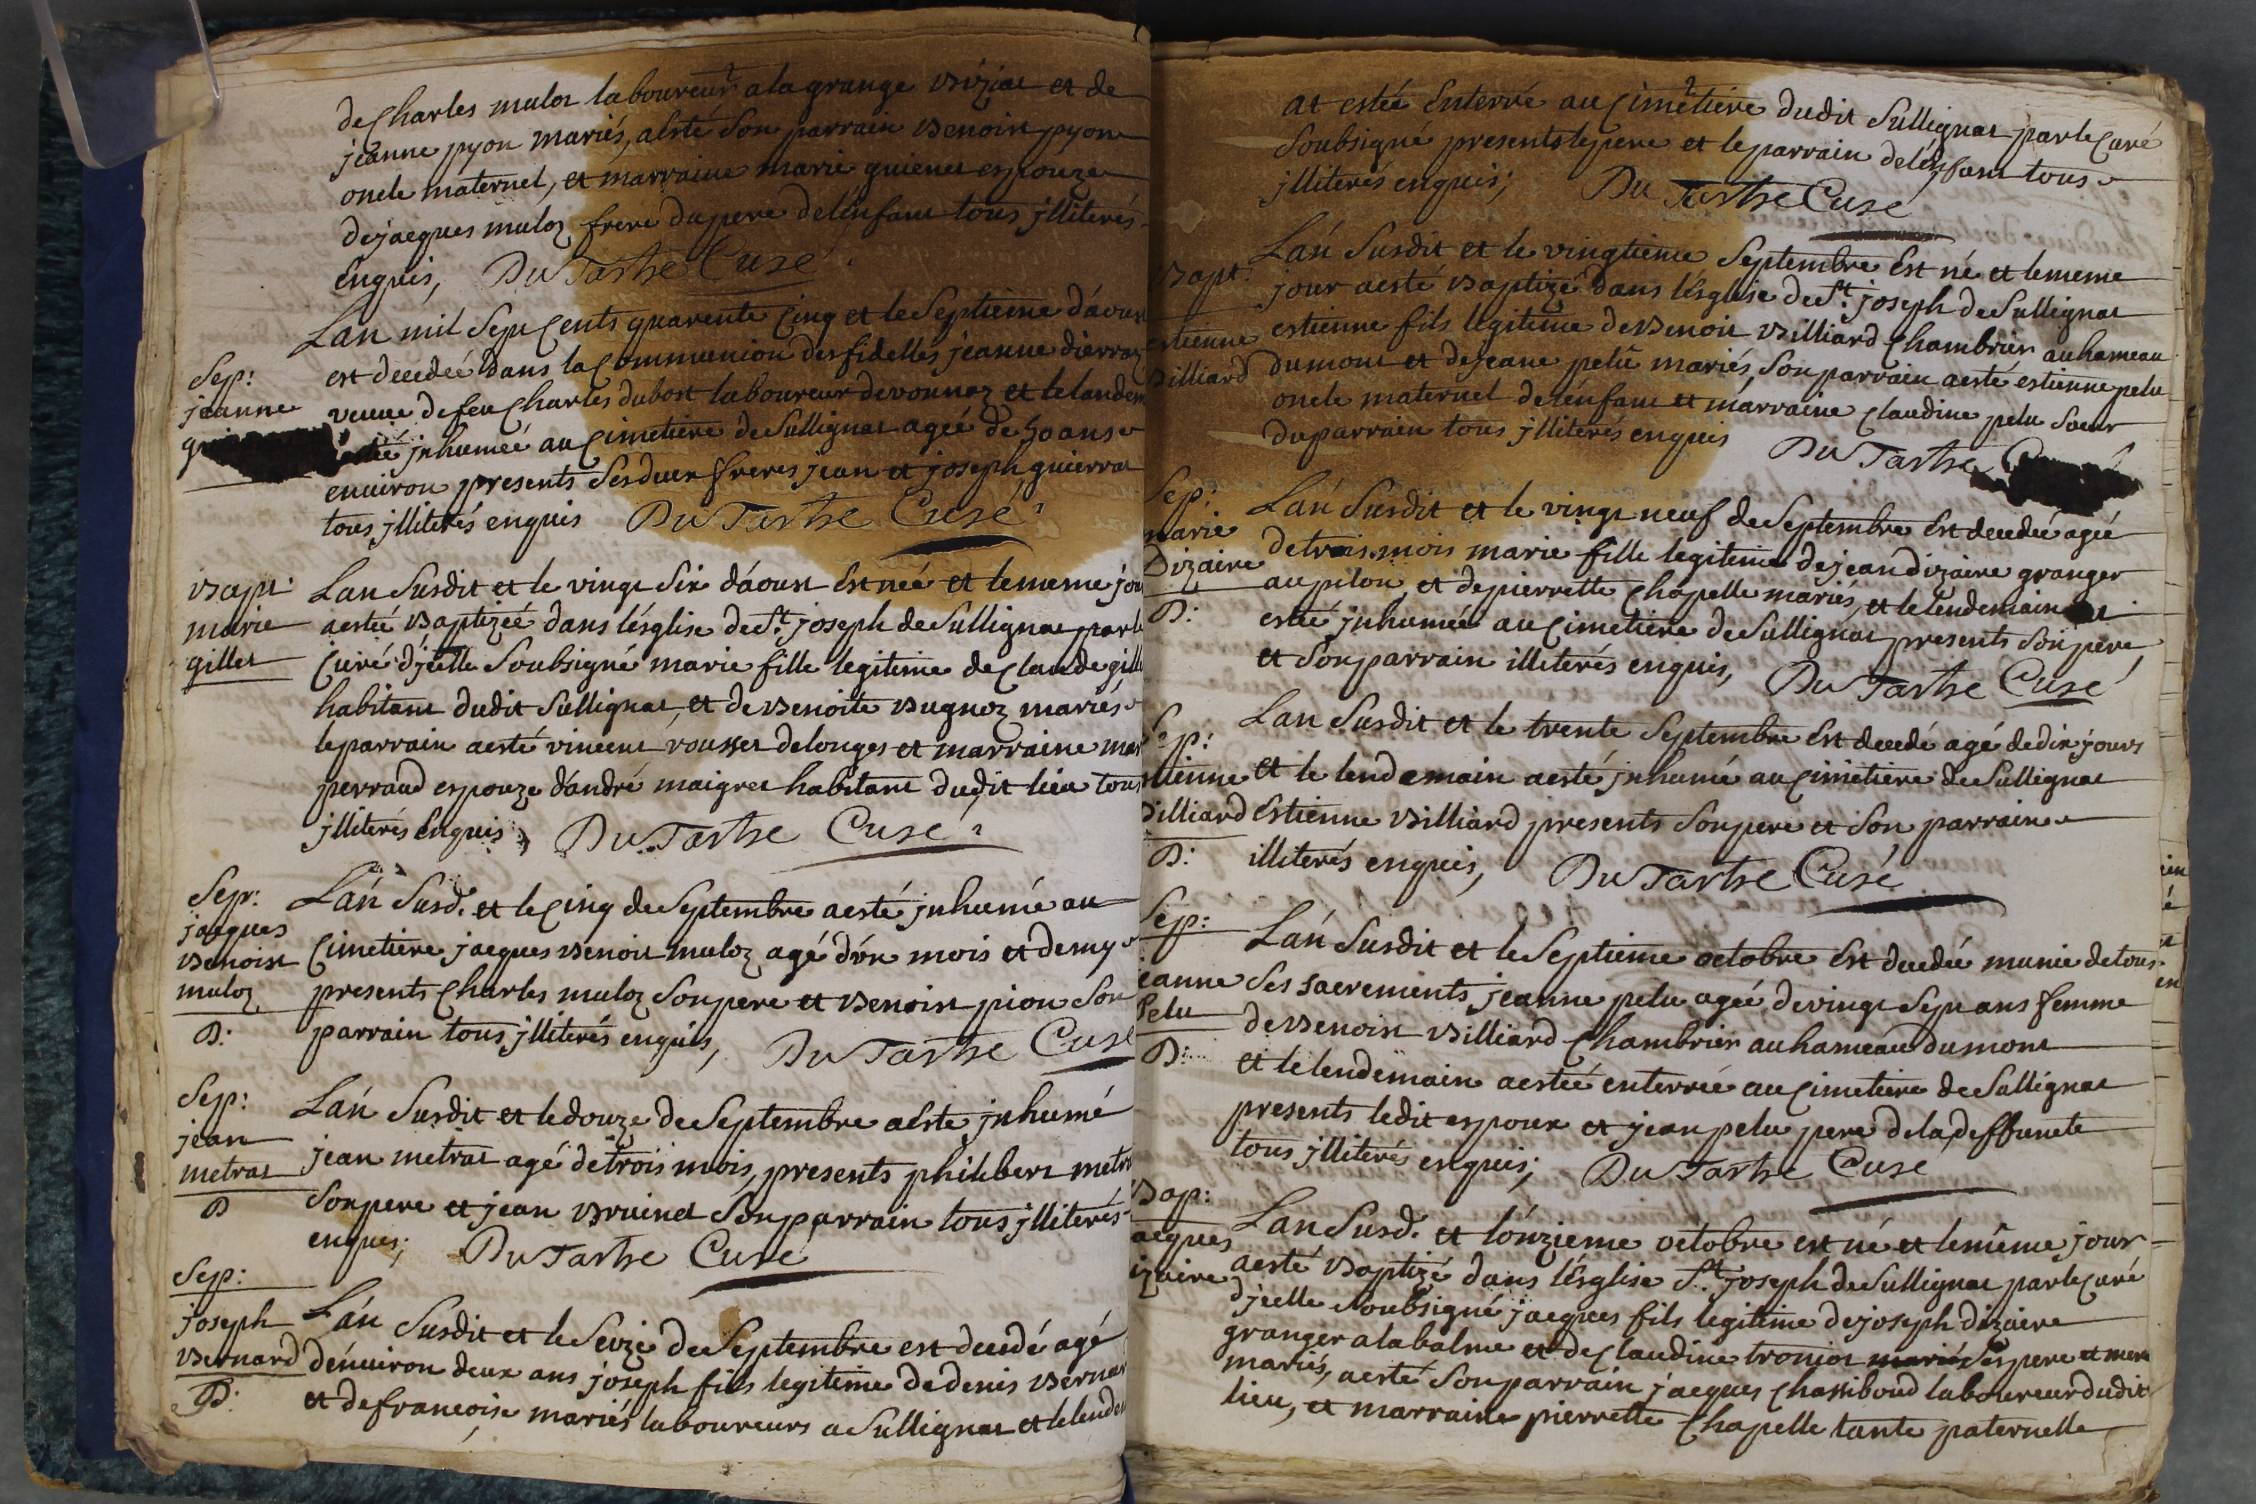 de Charles muloz laboureur a la grange viziat et de
jeanne pyon mariés, at esté son parrain Benoist pyon
oncle maternel, et marraine marie guienet espouze
de jacques muloz frere du pere de l'enfant tous jlliterés
enquis, Du Tartre Curé
Sep:
jeanne
Lan mil sept cents quarente cinq et le septieme d'aoust
est decedeé dans la communion des fidelles jeanne dierraz
veuve de feu Charles dubost laboureur de vonnaz et le landem
esté jnhumeé au cimetiere de Sullignat ageé de 50 ans
environ presents ses deux freres jean et joseph guierrat
tous jlliterés enquis Du Tartre Curé
Bapt:
marie
gillet
L'an susdit et le vingt six d'aoust est neé et le meme jou
at esté Baptizeé dans l'ésglise de St. joseph de Sullignat par le
Curé d'jcelle soubsigné marie fille legitime de Claude gill
habitant dudit Sullignat, et de Benoite Bugnoz mariés
le parrain at esté vincent rousset de longes et marraine mar
perraud espouze d'andré maigret habitant dudit lieu tous
jlliterés enquis, Du Tartre Curé
Sep:
jacques
Benoist
muloz
D:
L'an susd. et le cinq de Septembre at esté jnhumé au
Cimetiere jacques Benoit muloz agé d'vn mois et demy
presents Charles muloz son pere et Benoist pion son
parrain tous jlliterés enquis, Du Tartre Curé
Sep:
jean
metrat
D
L'an susdit et le douze de Septembre at esté jnhumé
jean metrat agé de trois mois, presents philibert metr
son pere et jean Bruinet son parrain tous jlliterés
enques; Du Tartre Curé
Sep:
joseph
Bernard
D:
L'an susdit et le seize de Septembre est decedé agé
d'environ deux ans joseph fils legitime de denis Bernar
et de francoise mariés laboureurs a Sullignat et le lende
at esteé enterré au cimetiere dudit Sullignat par le Curé
soubsigné presents le pere et le parrain de l'enfant tous
jlliterés enquis; Du Tartre Curé
Bapt:
estienne
Billiard
L'an susdit et le vingtieme Septembre est né et le meme
jour at esté Baptizé dans l'ésglise de St. joseph de Sullignat
estienne fils legitime de Benoit Billiard Chambrier au hameau
du mont et de jeane pelu mariés, son parrain at esté estienne pelu
oncle maternel de l'énfant et marraine Claudine pelu soeur
du parrain tous jlliterés enquis Du Tartre
Sep:
marie
Dizaire
D:
L'an susdit et le vingt neuf de Septembre est decedeé ageé
de trois mois marie fille legitime de jean dizaire granger
au pilon, et de pierrette Chapelle mariés, et le lendemain at
esté jnhumeé au cimetiere de Sullignat presents son pere,
et son parrain illiterés enquis, Du Tartre Curé
Sep:
estienne
Billiard
D:
L'an susdit et le trente Septembre est decedé agé de dix jours
et le lendemain at esté jnhumé au cimetiere de Sullignat
Estienne Billiard presents son pere et son parrain
illiterés enquis, Du Tartre Curé
Sep:
jeanne
Pelu
D:
L'an susdit et le septieme octobre est decedeé munie de tous
ses sacrements jeanne pelu ageé de vingt sept ans femme
de Benoist Billiard Chambrier au hameau du mont
et le lendemain at esteé enterreé au cimetiere de Sullignat
presents ledit espoux et jean pelu pere de la deffuncte
tous jlliterés enquis; Du Tartre Curé
Bap:
jacques
izaire
L'an susd. et l'ónzieme octobre est né et le même jour
at esté Baptizé dans l'ésglise St. joseph de Sullignat par le Curé
d'jcelle soubsigné jacques fils legitime de joseph dizaire
granger a la balme et de Claudine troniot mariés ses pere et mere
mariés, at esté son parrain jacques Chassiboud laboureur dudit
lieu, et marraine pierrette Chapelle tante paternelle